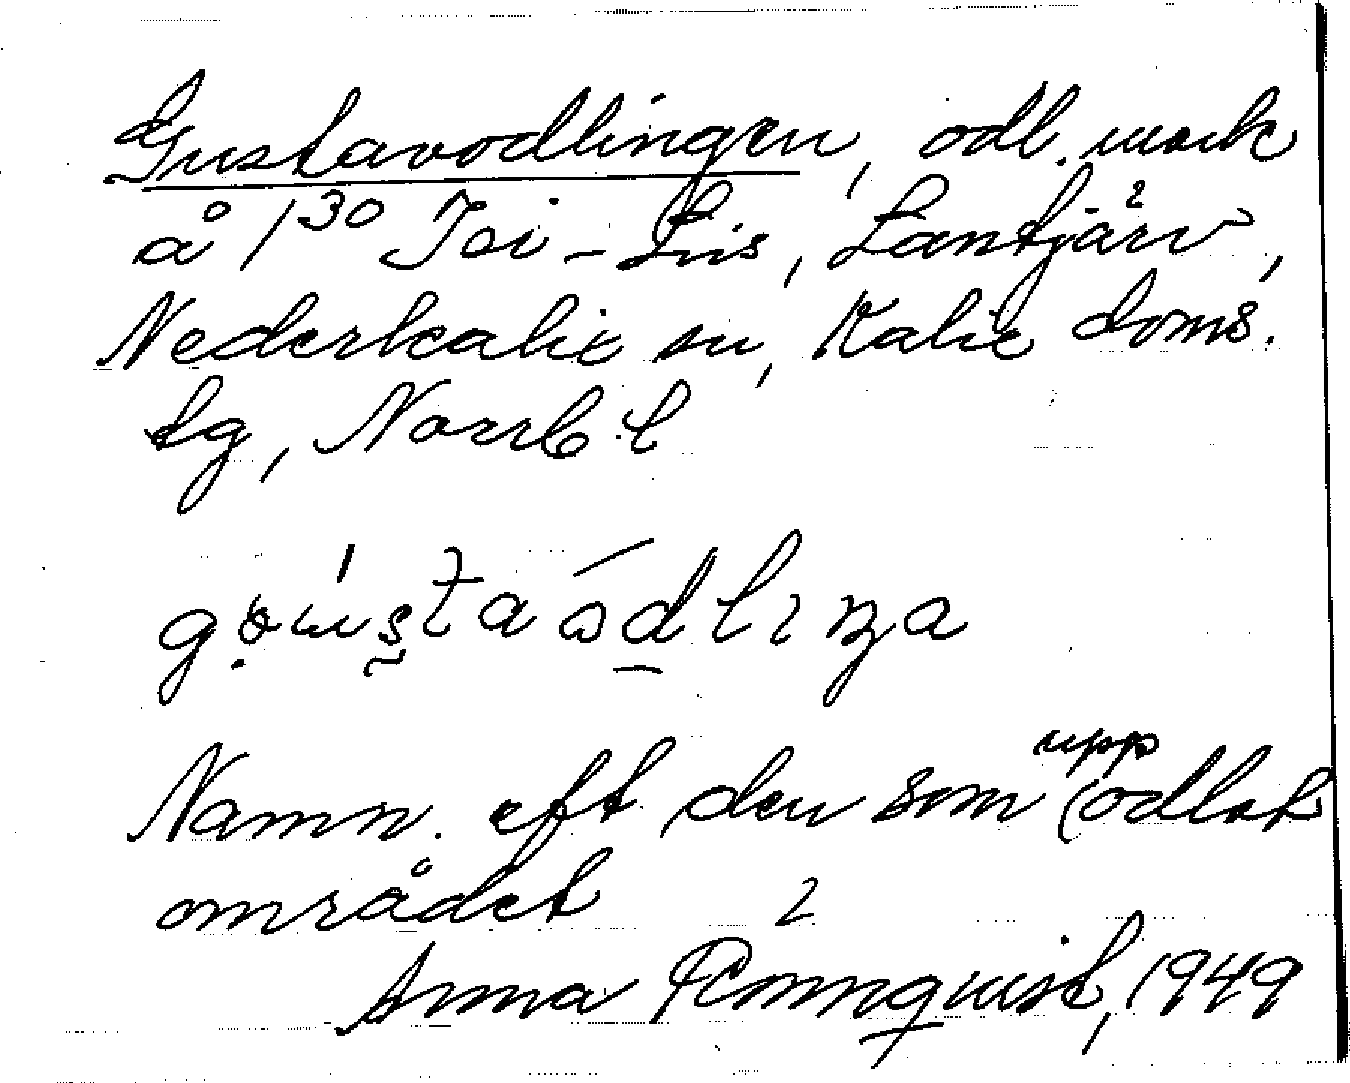 Gustavodlingen, odl. mark
å 1³⁰ Joi-Lis, Lantjärv,
Nederkalix sn, Kalix doms.
tg, Norrb l
Namn. eft den som uppodlat
området 2
Anna Rönnquist, 1949